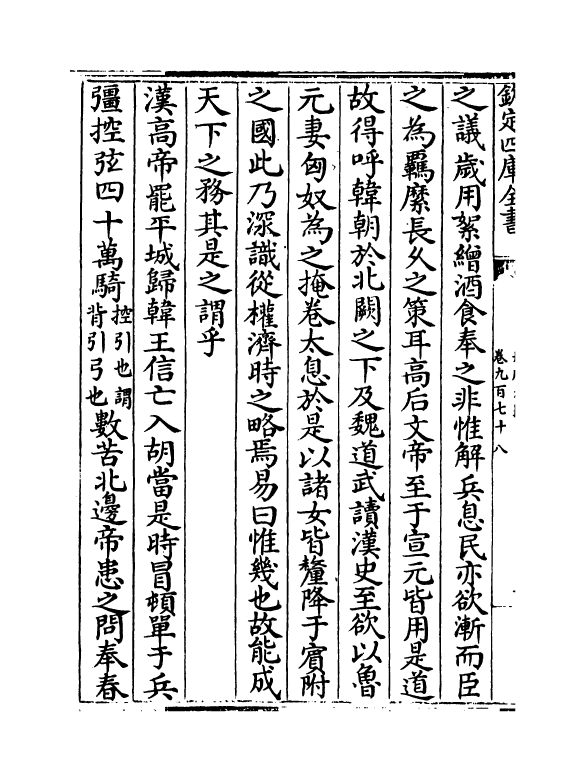 欽定四庫全書
卷九百七十八
之議歲用絮繒酒食奉之非惟解兵息民亦欲漸而臣
之為羈縻長久之策耳高后文帝至于宣元皆用是道
故得呼韓朝於北闕之下及魏道武讀漢史至欲以魯
元妻匈奴為之掩卷太息於是以諸女皆釐降于賔附
之國此乃深識從權濟時之略焉易曰惟幾也故能成
天下之務其是之謂乎
漢高帝罷平城歸韓王信亡入胡當是時冒頓單于兵
彊控弦四十萬騎控引也謂背引弓也數苦北邊帝患之問奉春